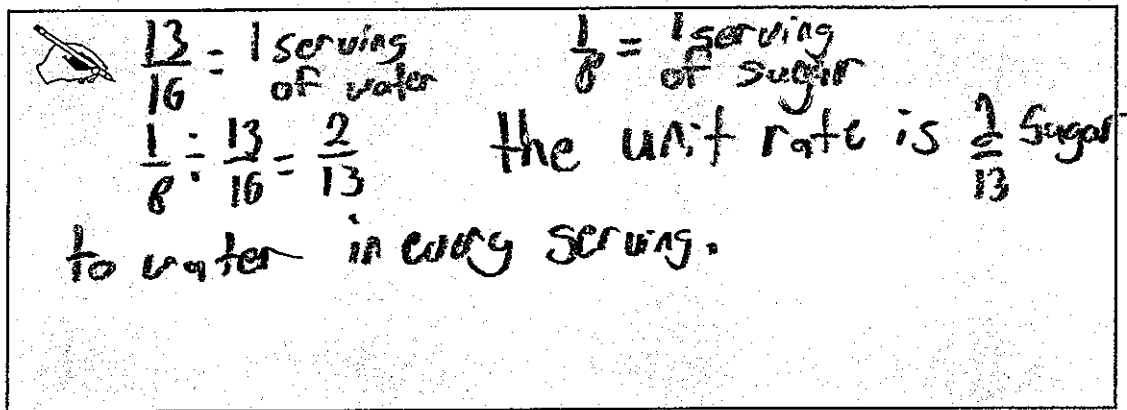 13/16 = 1 serving of water 1/8 = 1 serving of sugar
1/8 ÷ 13/16 = 2/13 the unit rate is 2/13 Sugar
to water in every serving.